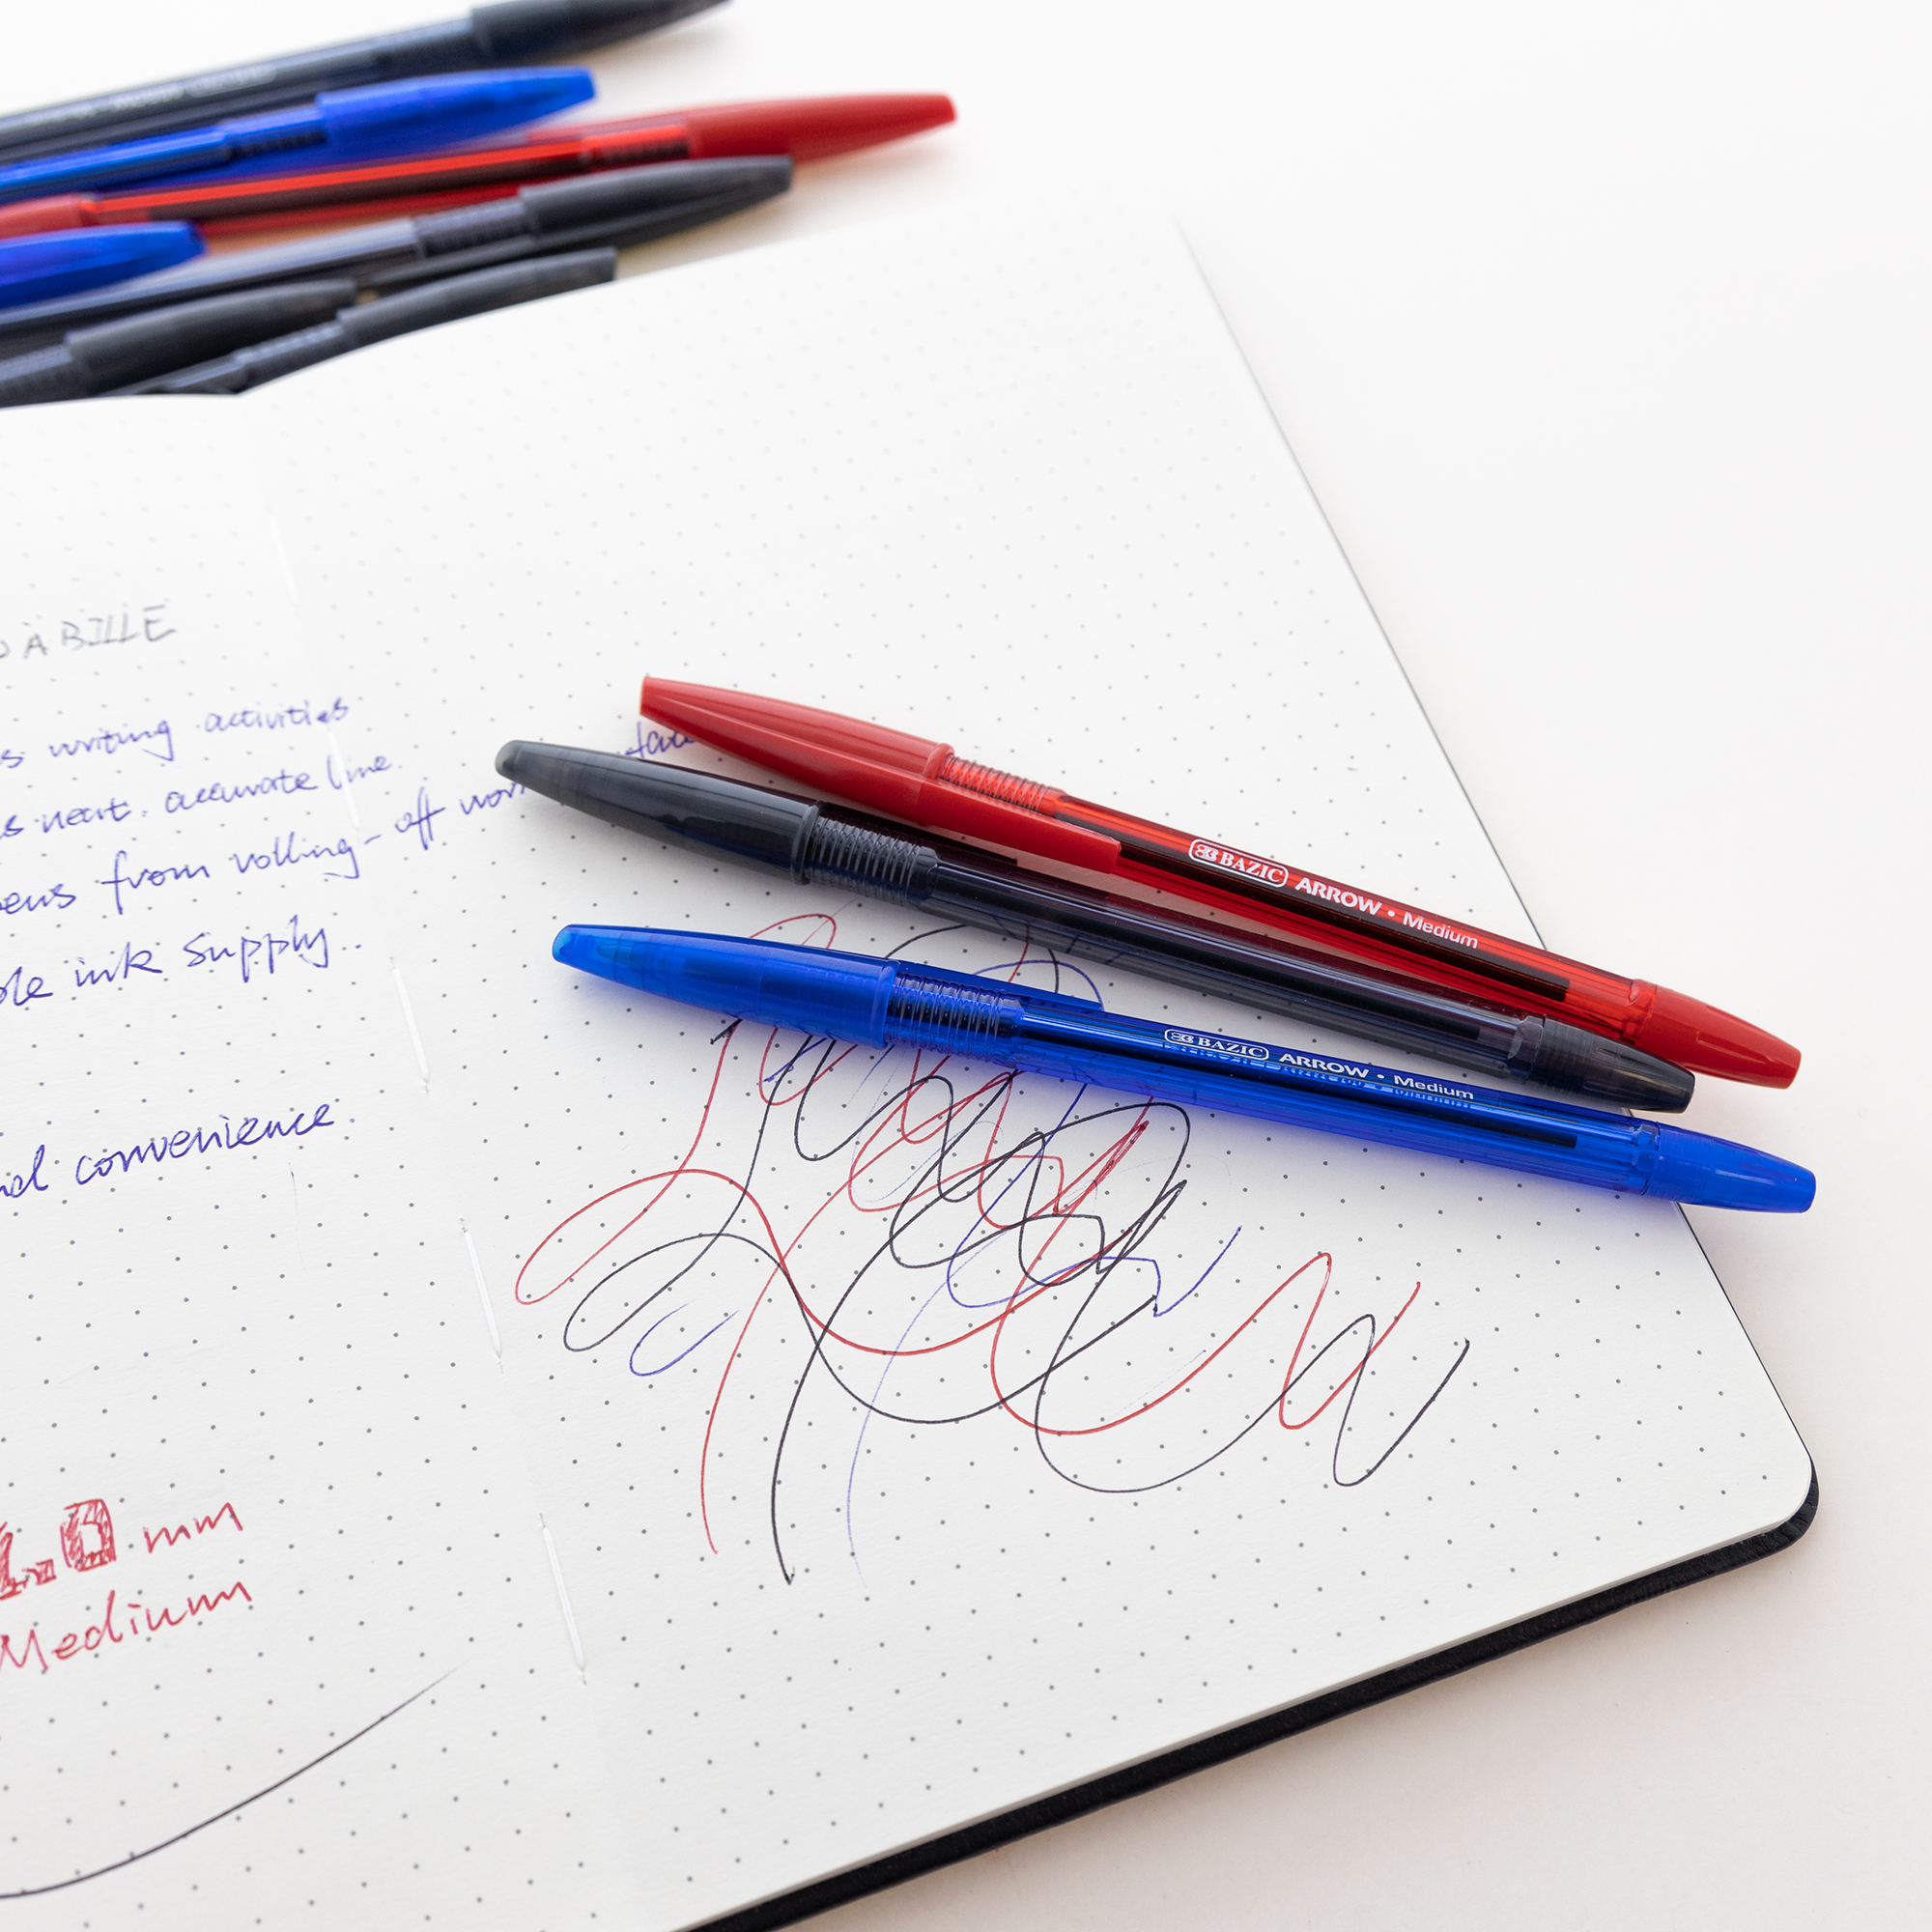 À BILLE
writing activities
neat. accurate line.
from rolling-off
ink supply.
convenience.
1.0 mm
Medium
BAZIC ARROW • Medium
BAZIC ARROW • Medium